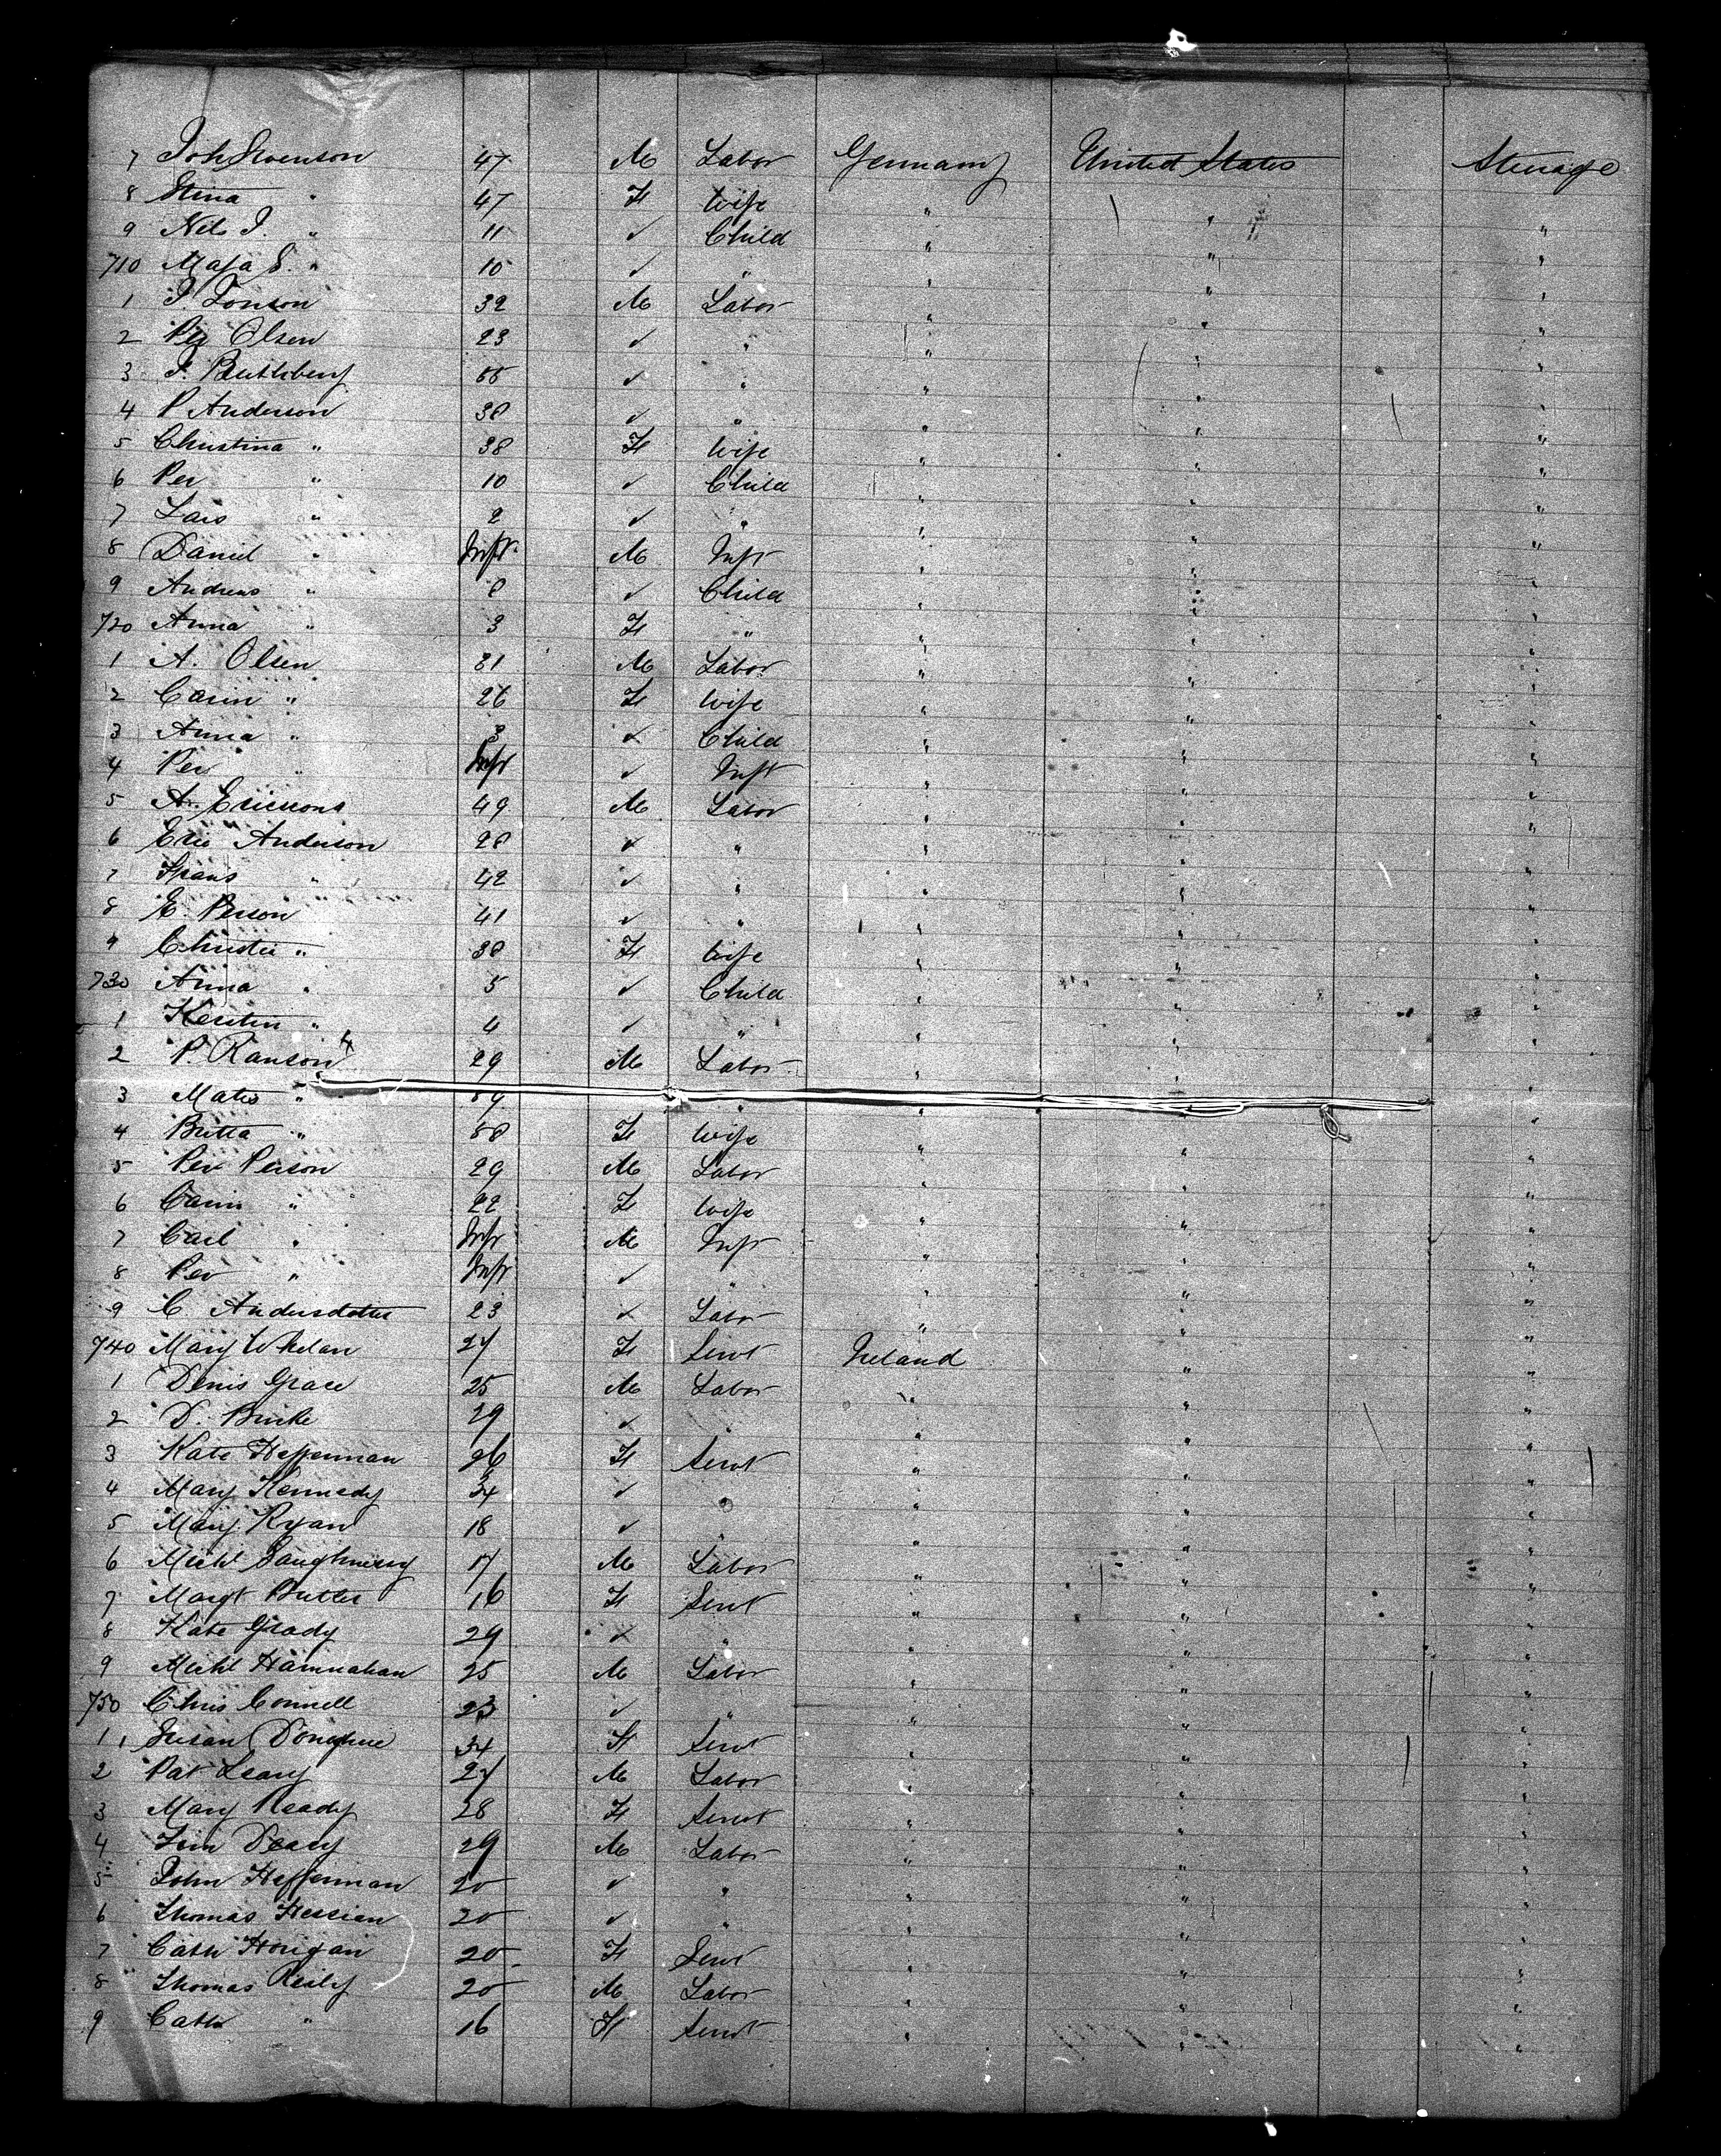 7 Joh Svenson 47 M Labor Germany United States Steerage
8 Stina " 47 F Wife " " "
9 Nels J. " 11 ✓ Child " " "
710 Maja S. " 10 ✓ " " " "
1 J Jonson 32 M Labor " " "
2 Per Olsen 23 ✓ " " " "
3 J. 55 ✓ " " " "
4 P Anderson 38 ✓ " " " "
5 Christina " 38 F Wife " " "
6 Per " 10 ✓ Child " " "
7 Lars " 2 ✓ " " " "
8 Daniel " Inft M Inft " " "
9 Andreas " 8 ✓ Child " " "
720 Anna " 3 F " " " "
1 A. Olsen 31 M Labor " " "
2 Carin " 26 F Wife " " "
3 Anna " 3 ✓ Child " " "
4 Per " Inft ✓ Inft " " "
5 A. Ericsons 49 M Labor " " "
6 Eric Anderson 28 ✓ " " " "
7 Frans " 42 ✓ " " " "
8 E. Person 41 ✓ " " " "
9 Christie " 38 F Wife " " "
730 Anna " 5 ✓ Child " " "
1 Kerstin " 4 ✓ " " " "
2 P. Ranson 29 M Labor " " "
3 Mates " 59 " " " "
4 Britta " 58 F Wife " " "
5 Per Person 29 M Labor " " "
6 Carin " 22 F Wife " " "
7 Carl " Inft M Inft " " "
8 Per " Inft ✓ " " " "
9 C Andersdotter 23 ✓ Labor " " "
740 Mary Whelan 27 F Servt Ireland " "
1 Denis Grace 25 M Labor " " "
2 D. Burke 29 ✓ " " "
3 Kate Heffernan 26 F Servt " " "
4 Mary Kennedy 34 ✓ " " " "
5 Mary Ryan 18 ✓ " " " "
6 Michl Saughnessy 17 M Labor " " "
7 Margt Butler 16 F Servt " " "
8 Kate Grady 29 ✓ " " " "
9 Michl Hannahan 25 M Labor " " "
750 Chris Connell 23 ✓ " " " "
1 Susan Donoghue 34 F Servt " " "
2 Pat Leary 27 M Labor " " "
3 Mary Ready 28 F Servt " " "
4 Tim Deary 29 M Labor " " "
5 John Heffernan 20 ✓ " " " "
6 Thomas Hessian 20 ✓ " " " "
7 Cath Horigan 20 F Servt " " "
8 Thomas Reily 20 M Labor " " "
9 Cath " 16 F Servt " " "